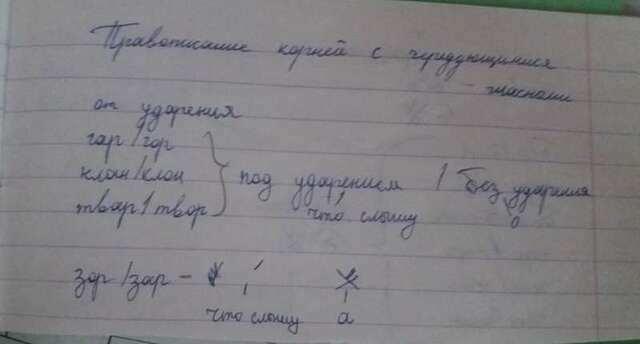 Правописание корней с чередующимися
гласными
от ударения
гар/гор
клан/клон } под ударением / без ударения
твар/твор что слышу о
зор/зар - ′
что слышу а